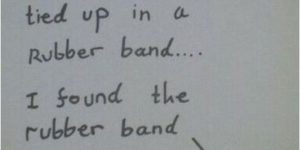 tied up in a
Rubber band....
I found the
rubber band